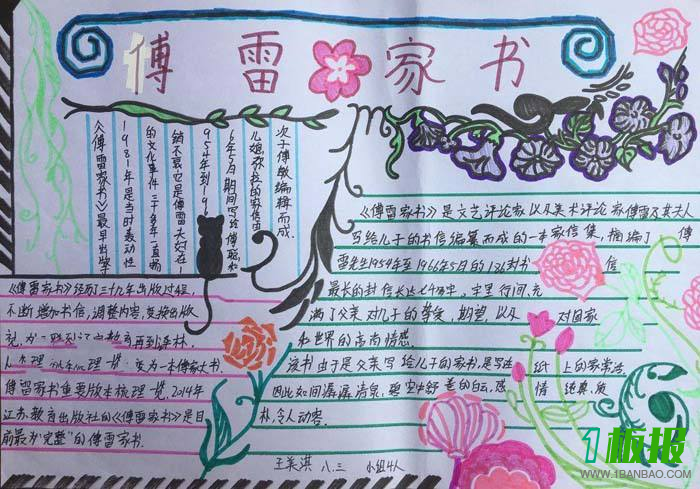 傅雷家书
《傅雷家书》最早出版于
1981年是当时轰动性
的文化事件三十多年一直畅
销不衰它是傅雷夫妇在1
954年到196
6年5月期间写给傅聪和
儿媳弥拉的家信由
次子傅敏编辑而成
《傅雷家书》是文艺评论家以及美术评论家傅雷及其夫人
写给儿子的书信编纂而成的一本家信集,摘编了 傅
雷先生1954年至1966年5月的 封书 信
最长的封信长达 字里行间,充
满了父亲对儿子的挚爱,期望,以及 对国家
和世界的高尚情感.
该书由于是父亲写给儿子的家书,是写在 纸 上的家常话.
因此如同潺潺清泉,碧空中舒卷的白云,感 情 纯真,质
朴,令人动容.
《傅雷家书》经历三十几年出版过程,
不断增加书信,调整内容,变换出版
再到译林.
变为一本家大书.
傅雷家书重要版本梳理一览,2014年
江苏教育出版社的《傅雷家书》是目
前最为"完整"的傅雷家书.
王美淇 八.三 小组4人
1板报
WWW.1BANBAO.COM